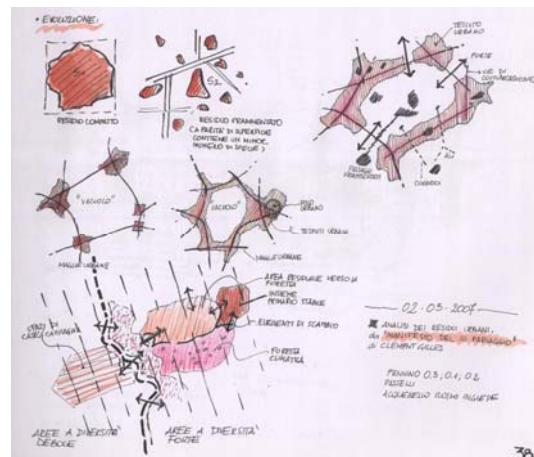 • EVOLUZIONE:
S1
S2
RESIDUO COMPATTO
RESIDUO FRAMMENTATO
(A PARITÀ DI SUPERFICIE
CONTIENE UN MINOR
NUMERO DI SPECIE)
TESSUTO
URBANO
PORTE
VIE DI
COMUNICAZIONE
CORRIDOI
"VACUOLO"
MAGLIE URBANE
"VACUOLO"
POLO
URBANO
TESSUTI URBANI
MAGLIE URBANE
AREA RESIDUALE VERSO LA
FORESTA
INSIEME
PRIMARIO STABILE
ELEMENTI DI SCAMBIO
FORESTA
CLIMATICA
SPAZI DI
AREE A DIVERSITÀ
DEBOLE
AREE A DIVERSITÀ
FORTE
02-03-2007
ANALISI DEI RESIDUI URBANI,
da "MANIFESTO DEL III PAESAGGIO"
di CLEMENT GILLES
PENNINO 0.3, 0.1, 0.2
PASTELLI
38